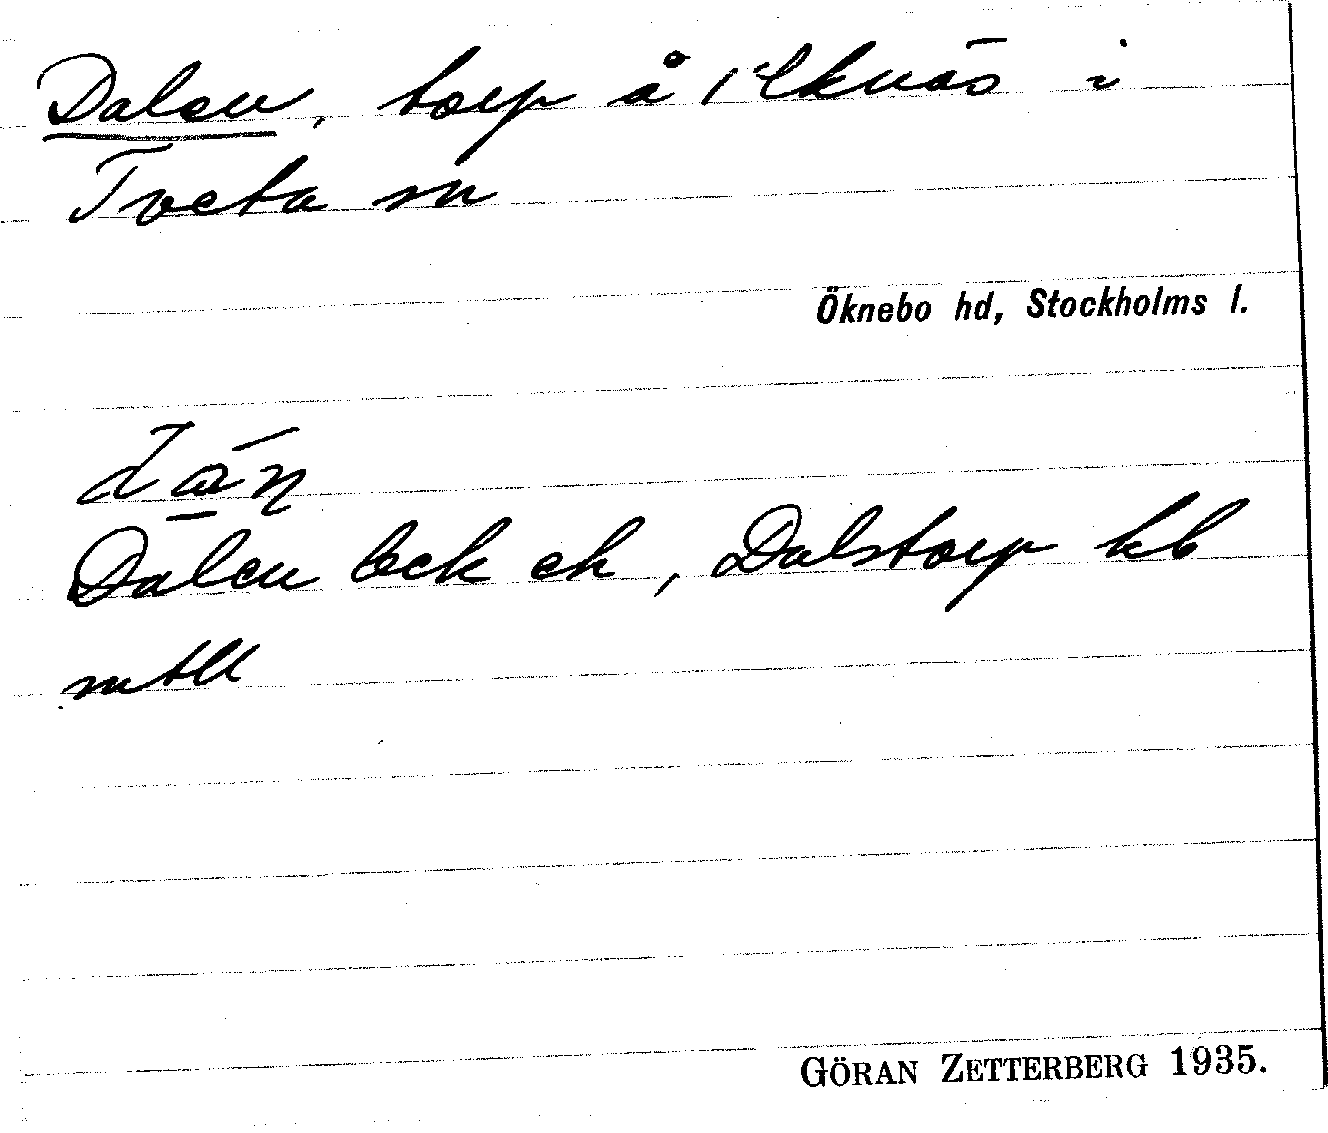 Dalen, torp å Eknäs i
Tveta sn
Öknebo hd, Stockholms l.
Dalen eck ek, Dalstorp kb
mtll
GÖRAN ZETTERBERG 1935.